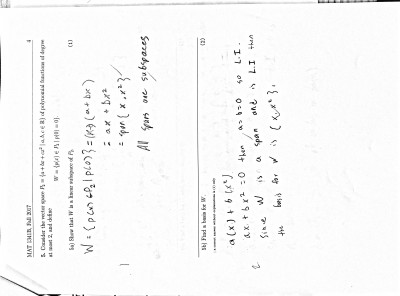 MAT 1341B, Fall 2017 4
5. Consider the vector space P₂ = {a + bx + cx² | a, b, c ∈ ℝ} of polynomial functions of degree
at most 2, and define
W = {p(x) ∈ P₂ | p(0) = 0}.
5a) Show that W is a linear subspace of P₂. (1)
W = {p(x) ∈ P₂ | p(0)} = (x) (a + bx)
= ax + bx²
= span { x, x² }
All spans are subspaces
1
5b) Find a basis for W. (2)
a(x) + b(x²)
ax + bx² = 0 then a=b=0 so L.I.
Since W is a span and is L.I then
the basis for W is { x, x² }.
2